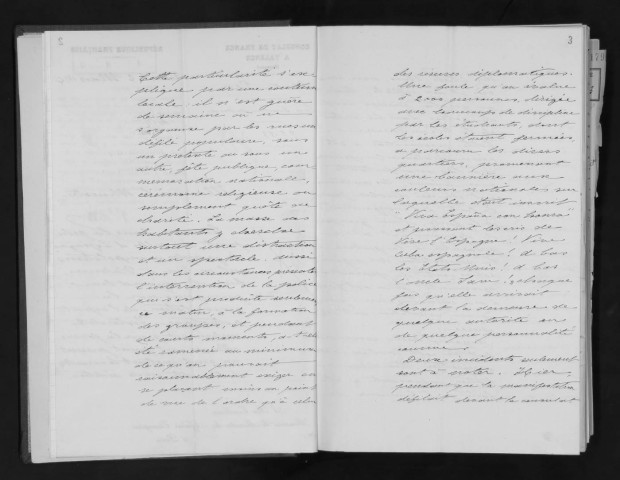 Cette particularité s'ex-
plique par une coutume
locale, il n'est guère
de semaine où ne
s'organise par les rues un
défilé populaire, sous
un prétexte ou sous un
autre, fête publique, com-
mémoration nationale,
cérémonie religieuse ou
simplement quête de
charité. La masse des
habitants y
surtout une distraction
et un spectacle. Aussi
dans les circonstances présentes
l'intervention de la police
qui s'est produite seulement
ce matin, à la formation
des groupes, et pendant
de courts moments, a-t-elle
été ramenée au minimum
de ce qu'on pourrait
raisonnablement exiger en
se plaçant moins au point
de vue de l'ordre qu'à celui
3
des usages diplomatiques.
Une foule qu'on évalue
à 2000 personnes, dirigée
avec beaucoup de discipline
par les étudiants dont
les écoles étaient fermées,
a parcouru les divers
quartiers, promenant
une bannière aux
couleurs nationales sur
laquelle était inscrit
"Viva España con honra"
et poussant les cris de
Vive l'Espagne! Vive
Cuba espagnole! à bas
les Etats-Unis! à bas
l'oncle Sam! chaque
fois qu'elle arrivait
devant la demeure de
quelque autorité ou
de quelque personnalité
connue.
Deux incidents seulement
sont à noter. Hier,
pendant que la manifestation
défilait devant le consulat